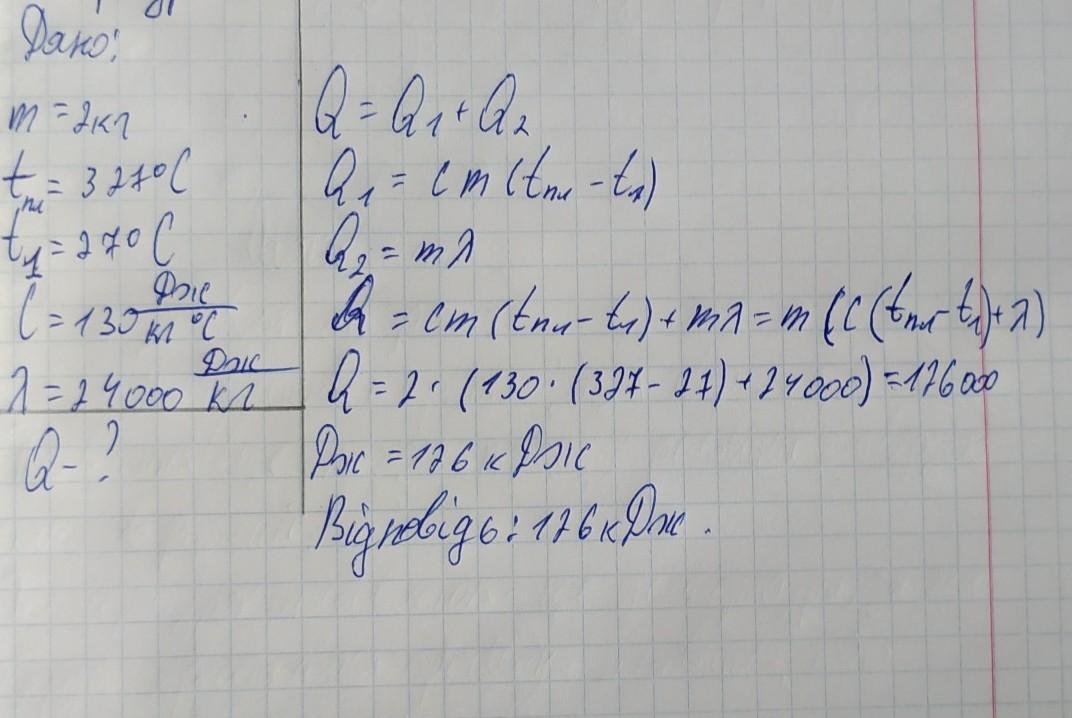 Дано:
m = 2кг
tпл = 327°C
t1 = 27°C
C = 130 Дж/кг °C
λ = 24000 Дж/кг
Q - ?
Q = Q1 + Q2
Q1 = cm (tпл - t1)
Q2 = mλ
Q = cm (tпл - t1) + mλ = m (c (tпл - t1) + λ)
Q = 2 · (130 · (327 - 27) + 24000) = 126000
Дж = 126 кДж
Відповідь: 126 кДж.